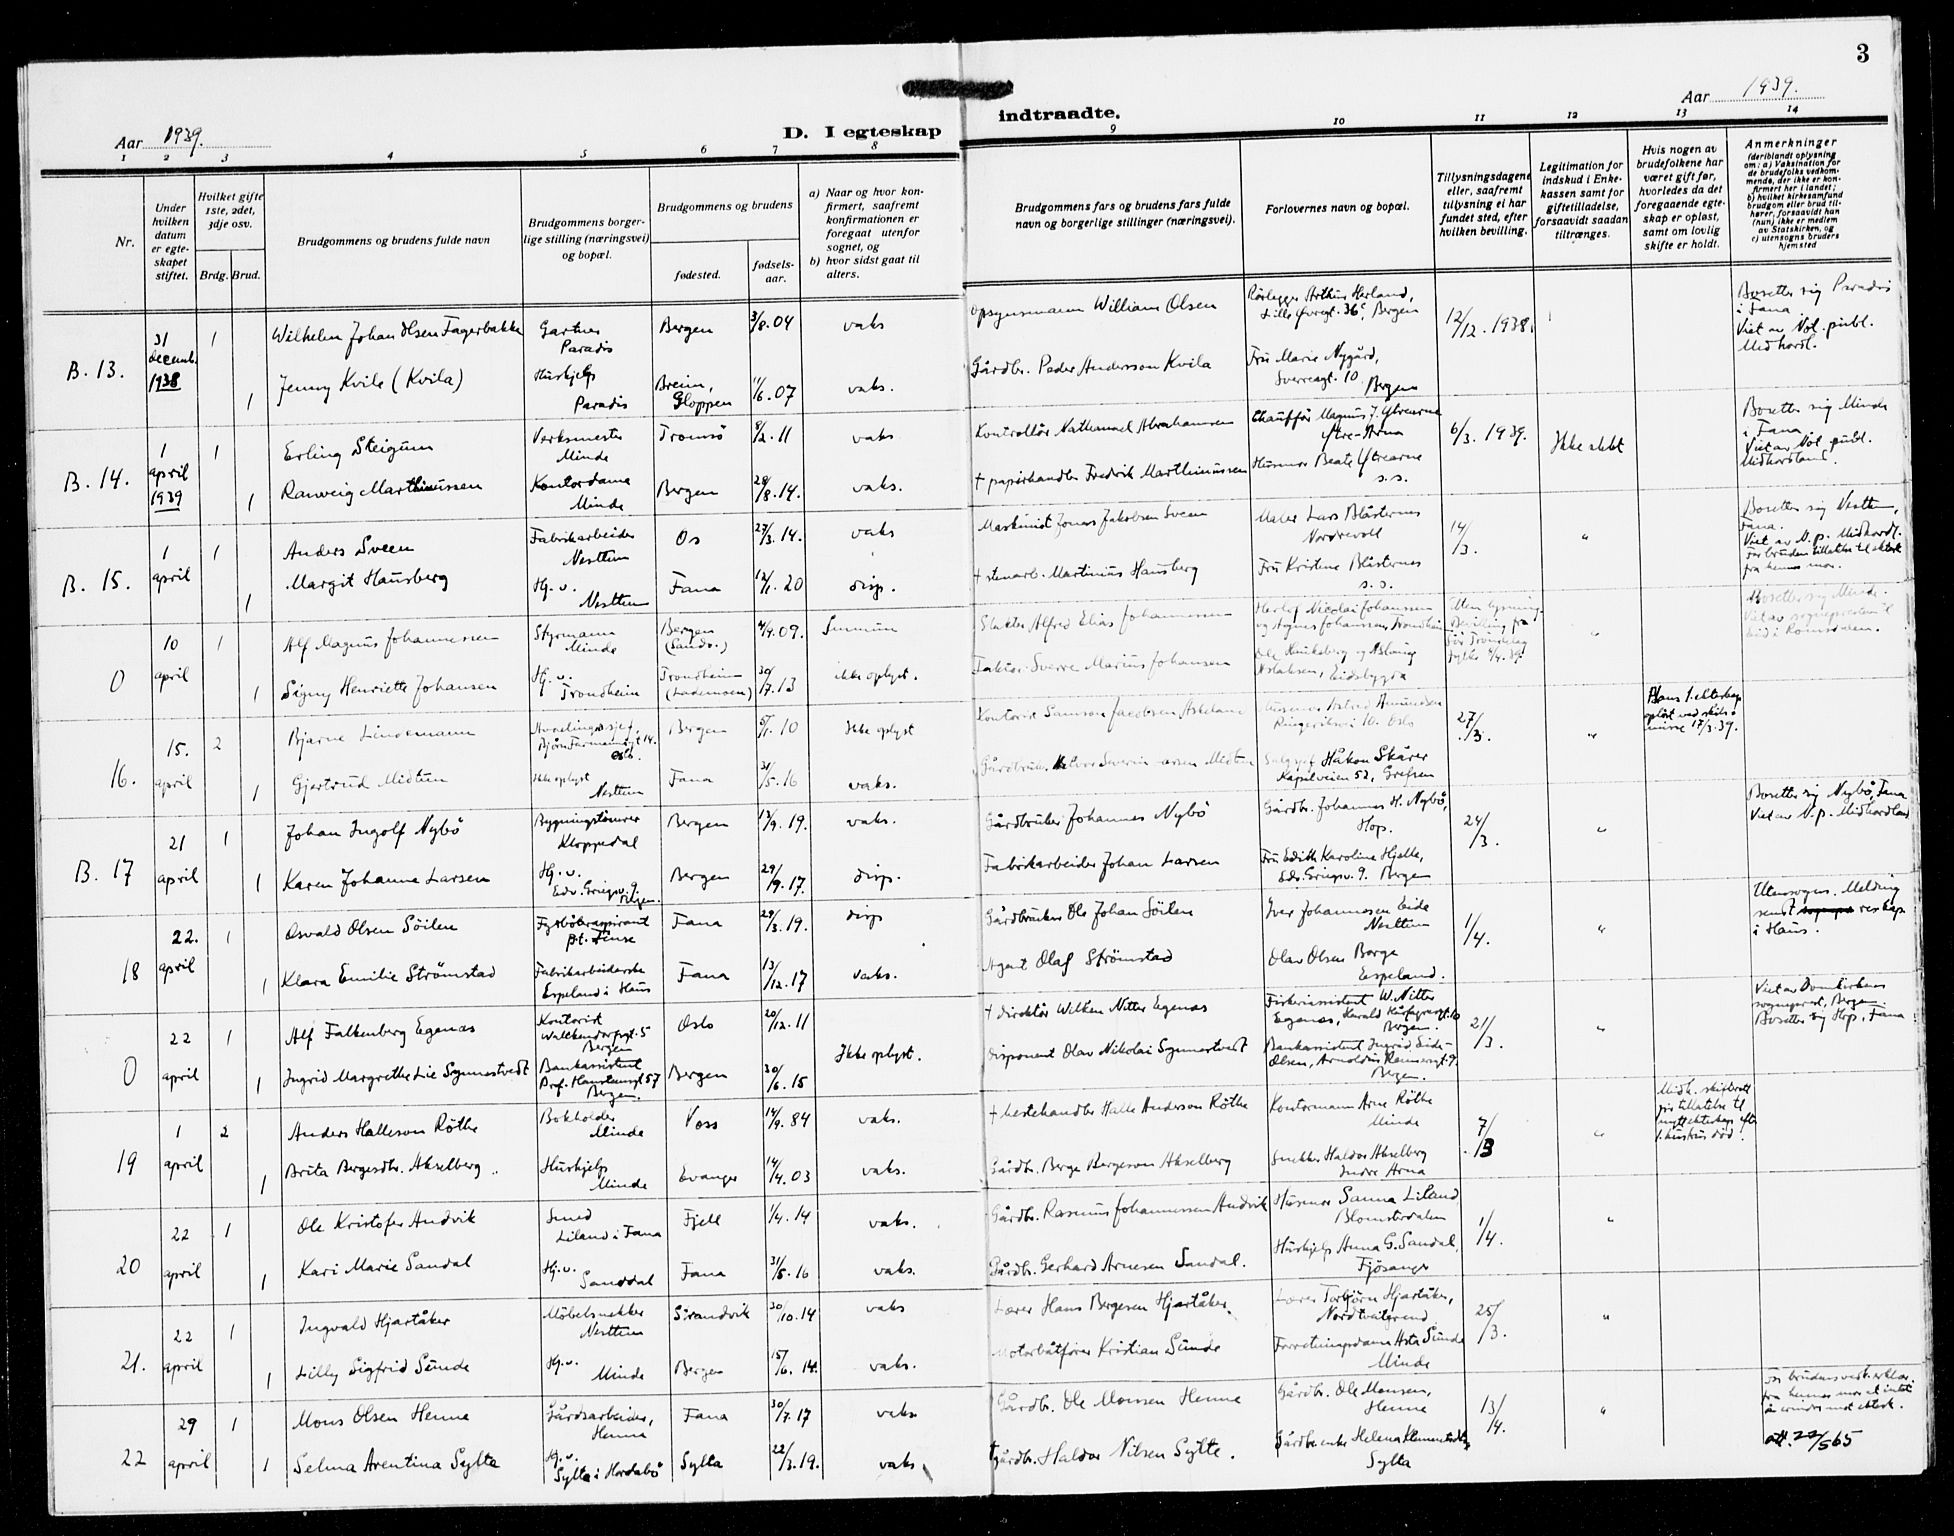 3
Aar 1939.
D. I egteskap indtraadte.
Aar 1939.
1 2 3 4 5 6 7 8 9 10 11 12 13 14
Nr.
Under hvilken datum er egteskapet stiftet.
Hvilket gifte 1ste, 2det, 3dje osv.
Brdg. Brud.
Brudgommens og brudens fulde navn
Brudgommens borgerlige stilling (næringsvei) og bopæl.
Brudgommens og brudens
fødested.
fødselsaar.
a) Naar og hvor konfirmert, saafremt konfirmationen er foregaat utenfor sognet, og
b) hvor sidst gaat til alters.
Brudgommens fars og brudens fars fulde navn og borgerlige stillinger (næringsvei).
Forlovernes navn og bopæl.
Tillysningsdagene eller, saafremt tillysning ei har fundet sted, efter hvilken bevilling.
Legitimation for indskud i Enkekassen samt for giftetilladelse, forsaavidt saadan tiltrænges.
Hvis nogen av brudefolkene har været gift før, hvorledes da det foregaaende egteskap er opløst, samt om lovlig skifte er holdt.
Anmerkninger
(deriblandt oplysning om: a) Vaksination for de brudefolks vedkommende, der ikke er konfirmert her i landet; b) hvilket kirkesamfund brudgom eller brud tilhører, forsaavidt han (hun) ikke er medlem av Statskirken, og c) utensogns bruders hjemsted
B. 13. 31 decemb. 1938 1 Wilhelm Johan Olsen Fagerbakke Gartner Paradis Bergen 3/8.04 vaks Opsynsmann William Olsen Rørlegger Arthur Herland, Lille Øvregt. 36c Bergen 12/12.1938. Bosetter sig Paradis i Fana Viet av Not. publ. Midhordl.
1 Jenny Kvile (Kvila) Hushjelp Paradis Breim, Gloppen 11/6.07 vaks. Gårdbr. Peder Andersson Kvila Fru Marie Nygård, Sverresgt. 10 Bergen
B. 14. 1 april 1939 1 Erling Steigum Verksmester Minde Tromsø 8/2.11 vaks Kontrollør Nathanael Abrahamsen Chauffør Magnus J. Ytrearne Ytre-Arna 6/3. 1939. Ikke slekt Bosetter sig Minde i Fana Viet av Not. publ. Midhordland.
1 Ranveig Marthinussen Kontordame Minde Bergen 28/8.14. vaks. + papirhandler Fredrik Marthinussen Husmor Beate Ytrearne s.s.
B. 15. 1 april 1 Anders Sveen Fabrikarbeider Nesttun Os 27/3.14. vaks Maskinist Jonas Jakobsen Sveen Maler Lars Blåsternes Nordrevoll 14/3. " Bosetter sig Nesttun, Fana. Viet av N.p. Midhordl. For bruden tillatelse til ektesk. fra hennes mor.
1 Margit Hausberg Hj. v. Nesttun Fana 12/1.20 disp. + stenarb. Martinius Hausberg Fru Kristine Blåsternes s.s.
0 10 april 1 Alf Magnus Johannessen Styrmann Minde Bergen (Sandv.) 4/9.09. Slakter Alfred Elias Johannessen Herlof Nicolai Johanssen og Agnes Johanssen, Trondheim Uten lysning. Bevilling fra Sør Trøndelag fylke 4/4.39. " Bosetter sig Minde. Viet av sognepresten til Eid i Romsdalen.
1 Signy Henriette Johansen Hj. v. Trondheim Trondheim (Lademoen) 30/7.13 ikke oplyst. Faktor Sverre Marius Johansen Aslaksen, Eidsbygda
16. 15. april 2 Bjarne Lindemann Avdelingssjef, Bjørn Farmannsgt 14. Oslo. Bergen 5/1.10 Ikke oplyst Kontorist Samson Jacobsen Askeland Husmor Astrid Amundsen Ringeriksvei 10. Oslo 27/3. " Hans 1. ekteskap opløst ved skilsmisse 17/3.39.
1 Gjertrud Midtun Ikke oplyst Nesttun Fana 31/5.16 vaks. Salgssjef Håkon Skårer Kapellveien 52, Grefsen
B. 17 21 april 1 Johan Ingolf Nybø Bygningstømrer Kloppedal Bergen 13/9.19. vaks. Gårdbruker Johannes Nybø Gårdbr. Johannes H. Nybø, Hop. 24/3. " Bosetter sig Nybø, Fana Viet av N.p. Midhordland
1 Karen Johanne Larsen Hj. v. Edv. Griegsv. 9. Bergen. Bergen 29/9.17. disp. Fabrikarbeider Johan Larsen Fru Edith Karoline Hjelle, Edv. Griegsv. 9. Bergen
18 22. april 1 Osvald Olsen Søilen Fyrbøteraspirant p.t. Finse Fana 29/3.19. disp Gårdbruker Ole Johan Søilen Iver Johannesen Eide Nesttun 1/4. " Utensogns. Melding sendt sogнepr reskap. i Haus.
1 Klara Emilie Strømstad Fabrikarbeiderske Espeland i Haus Fana 13/12.17 vaks. Agent Olaf Strømstad Olav Olsen Borge Espeland.
0 22 april 1 Alf Falkenberg Egenæs Kontorist Walkendorfsgt. 5 Bergen Oslo 20/12.11 Ikke oplyst. + direktør Wilken Nitter Egenæs Fiskeriassistent W. Nitter Egenæs, Harald Hårfagresgt. 10 Bergen. 21/3. " Viet av Domkirkens sogneprest, Bergen. Bosetter sig Hop, Fana
1 Ingrid Margrethe Lie Synnestvedt Bankassistent Prof. Hansteensgt 57 Bergen. Bergen 30/6.15 Disponent Olav Nikolai Synnestvedt Bankassistent Ingrid Eide-Olsen, Arnoldus Reimersgt. 9. Bergen.
19 1 april 2 Anders Halleson Røthe Bokholder Minde Voss 14/9.84 vaks. + hestehandler Halle Anderson Røthe Kontormann Arne Røthe Minde 7/3 " Midh. skifterett gir tillatelse til nytt ekteskap efter 1. hustrus død.
1 Brita Bergesdtr. Akselberg Hushjelp Minde Evanger 14/4.03 vaks. Gårdbr. Berge Bergeson Akselberg Snekker Haldor Akselberg Indre Arna
20 22 april 1 Ole Kristofer Andvik Smed Liland i Fana Fjell 1/4.14 vaks. Gårdbr. Rasmus Johannessen Andvik Husmor Sanna Liland Blomsterdalen 1/4. "
1 Kari Marie Sandal Hj. v. Sanddal Fana 31/5.16 vaks. Gårdbr. Gerhard Arnesen Sandal. Hushjelp Anna G. Sandal, Fjøsanger
21. 22 april 1 Ingvald Hjartåker Møbelsnekker Nesttun Strandvik 30/10.14 vaks Lærer Hans Bergesen Hjartåker. Lærer Torbjørn Hjartåker, Nordtveitgrend 25/3. "
1 Lilly Sigfrid Sunde Hj. v. Minde Bergen 15/6.14. vaks. Motorbåtfører Kristian Sunde Forretningsdame Asta Sunde Minde
22 29 april 1 Mons Olsen Henne Gårdsarbeider, Henne Fana 30/7.17 vaks. Gårdbr. Ole Monsen Henne Gårdbr. Ole Monsen, Henne 13/4. " For brudens verk. erklær. fra hennes mor at intet å erindre mot ektesk.
1 Selma Arentina Sylta Hj. v. Sylta i Hordabø Sylta 22/3.19. vaks + gårdbr. Haldor Nilsen Sylte. Gårdbr. enke Helena Klementsdtr. Sylta att. 22/5 65